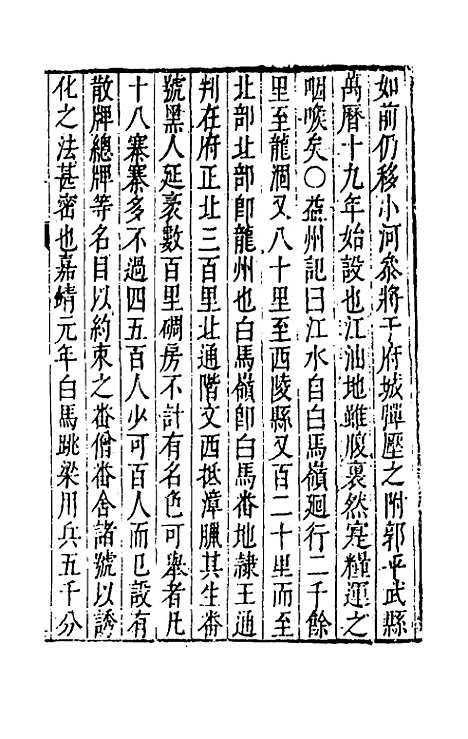 如前仍移小河叅將于府城彈壓之附郭平武縣
萬曆十九年始設也江油地雖腹裏然寔糧運之
咽喉矣○益州記曰江水自白馬嶺廻行二千餘
里至龍涸又八十里至西陵縣又百二十里而至
北部北部卽龍州也白馬嶺卽白馬番地隷王通
判在府正北三百里北通階文西抵漳臘其生番
號黑人延袤數百里碉房不計有名色可舉者凡
十八寨寨多不過四五百人少可百人而已設有
散牌總牌等名目以約束之番僧番舍諸號以誘
化之法甚密也嘉靖元年白馬跳梁用兵五千分